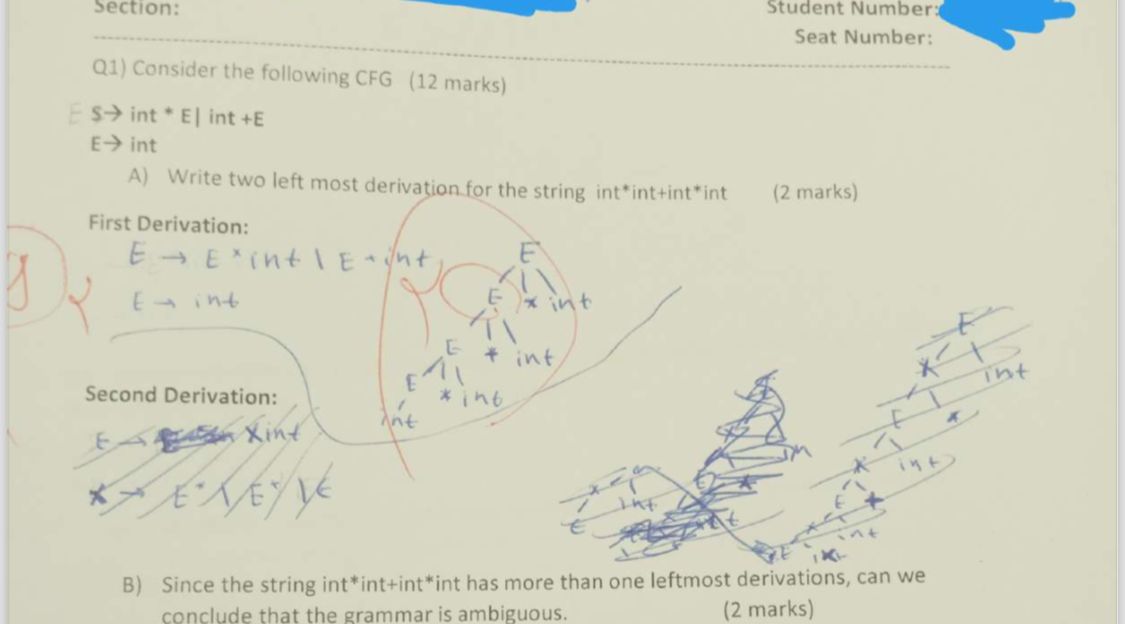 Section:
Student Number:
Seat Number:
Q1) Consider the following CFG (12 marks)
E S→ int * E| int +E
E→ int
A) Write two left most derivation for the string int*int+int*int (2 marks)
First Derivation:
E → E * int | E + int
E → int
E
E * int
E * int
E * int
int
Second Derivation:
E → X int
X → E* / E+ / E
E
X int
E *
X int
E *
X int
E
X int
E
B) Since the string int*int+int*int has more than one leftmost derivations, can we
conclude that the grammar is ambiguous. (2 marks)